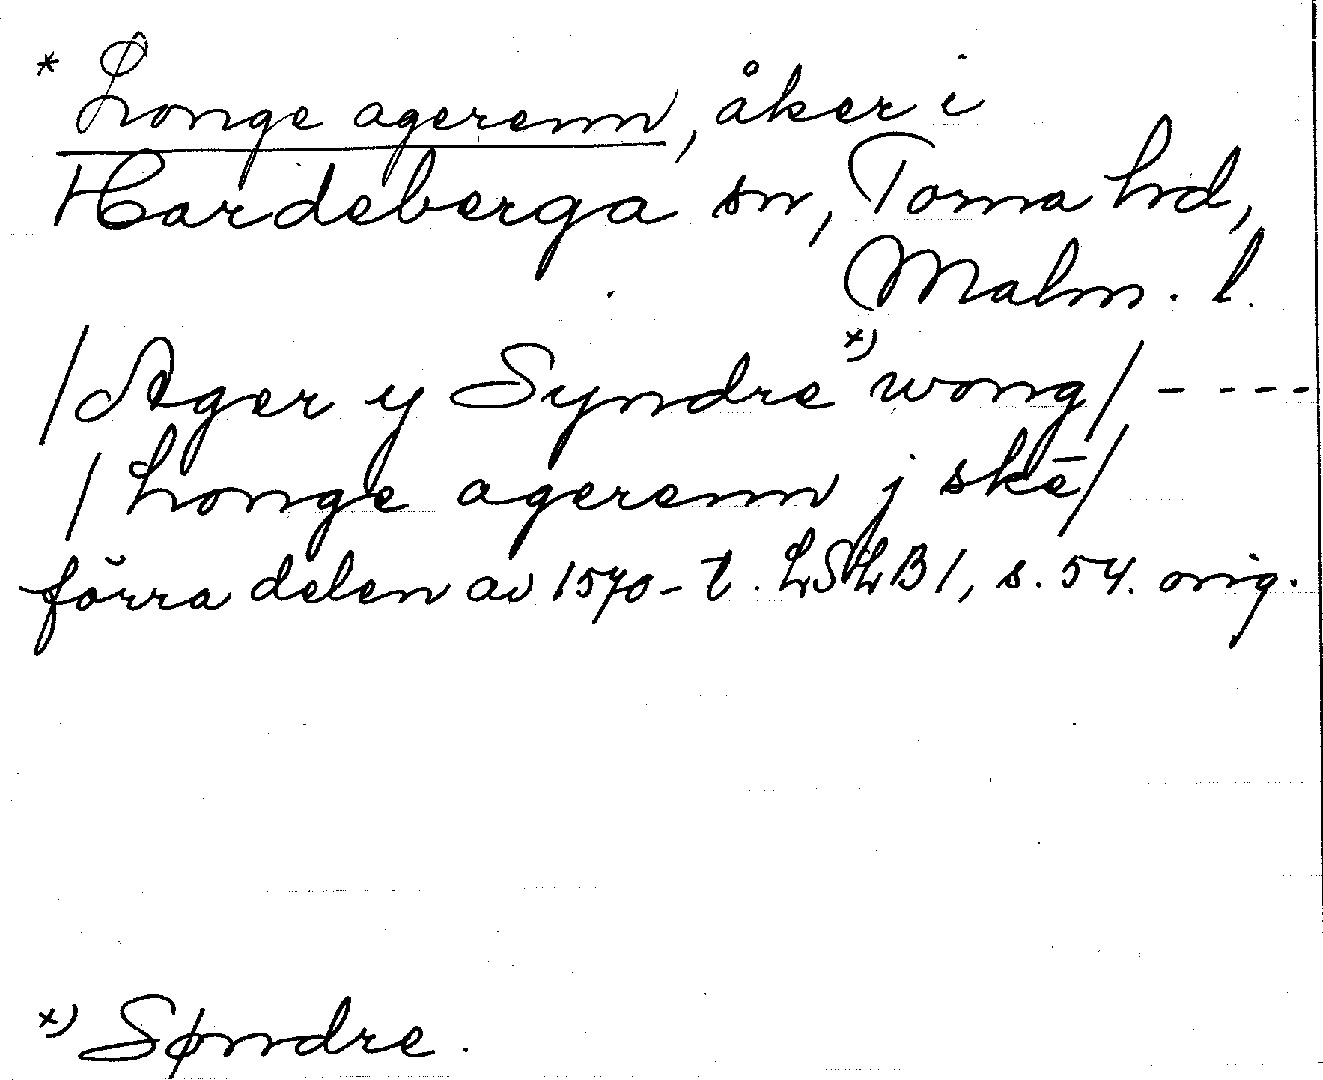 * Longe agerenn, åker i
Hardeberga sn, Torna hd,
Malm. l.
/Ager y Syndre x) wong/ - - - -
/ Longe agerenn j skē/
förra delen av 1570-t. LSLB 1, s. 54. orig.
x) Søndre.